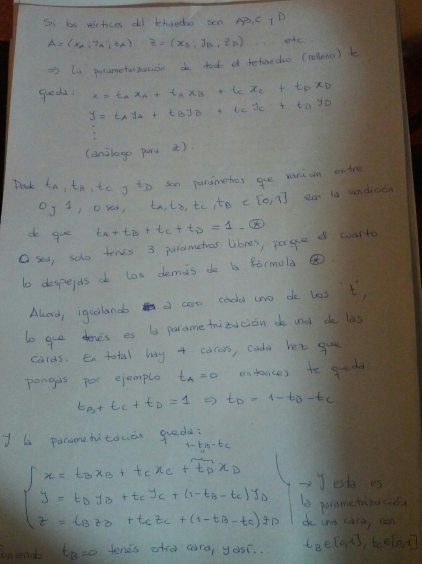 Si los vértices del tetraedro son A, B, C y D
A = (xA, yA, zA) B = (xB, yB, zB) .... etc
⇒ La parametrización de todo el tetraedro (relleno) te
queda: x = tA xA + tB xB + tC xC + tD xD
y = tA yA + tB yB + tC yC + tD yD
⋮
(análogo para z)
Donde tA, tB, tC y tD son parámetros que varían entre
0 y 1, o sea, tA, tB, tC, tD ∈ [0,1] con la condición
de que tA + tB + tC + tD = 1 - ⊛
O sea, solo tenés 3 parámetros libres, porque el cuarto
lo despejás de los demás de la fórmula ⊛.
Ahora, igualando a cero cada uno de los "t",
lo que tenés es la parametrización de una de las
caras. En total hay 4 caras, cada vez que
pongas por ejemplo tA = 0 entonces te queda:
tB + tC + tD = 1 ⇒ tD = 1 - tB - tC
Y la parametrización queda:
1 - tB - tC
x = tB xB + tC xC + tD xD
y = tB yB + tC yC + (1 - tB - tC) yD
z = tB zB + tC zC + (1 - tB - tC) zD
→ Y esta es
la parametrización
de una cara, con
tB ∈ [0,1], tC ∈ [0,1]
Poniendo tB = 0 tenés otra cara, y así...